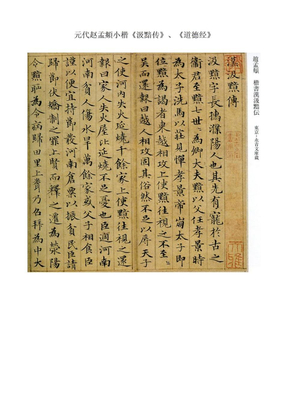 元代赵孟頫小楷《汲黯传》、《道德经》
趙孟頫 楷書漢汲黯伝
東京・永青文庫蔵
漢汲黯傳
汲黯字長孺濮陽人也其先有寵於古之
衛君至黯七世為卿大夫黯以父任孝景時
為太子洗馬以莊見憚孝景帝崩太子即
位黯為謁者東越相攻上使黯往視之不至
吳而還報曰越人相攻固其俗然不足以辱天子
之使河內失火延燒千餘家上使黯往視之還
報曰家人失火屋比延燒不足憂也臣過河南
河南貧人傷水旱萬餘家或父子相食臣
謹以便宜持節發河南倉粟以振貧民臣請
歸節伏矯制之罪上賢而釋之遷為滎陽
令黯恥為令病歸田里上聞乃召拜為中大